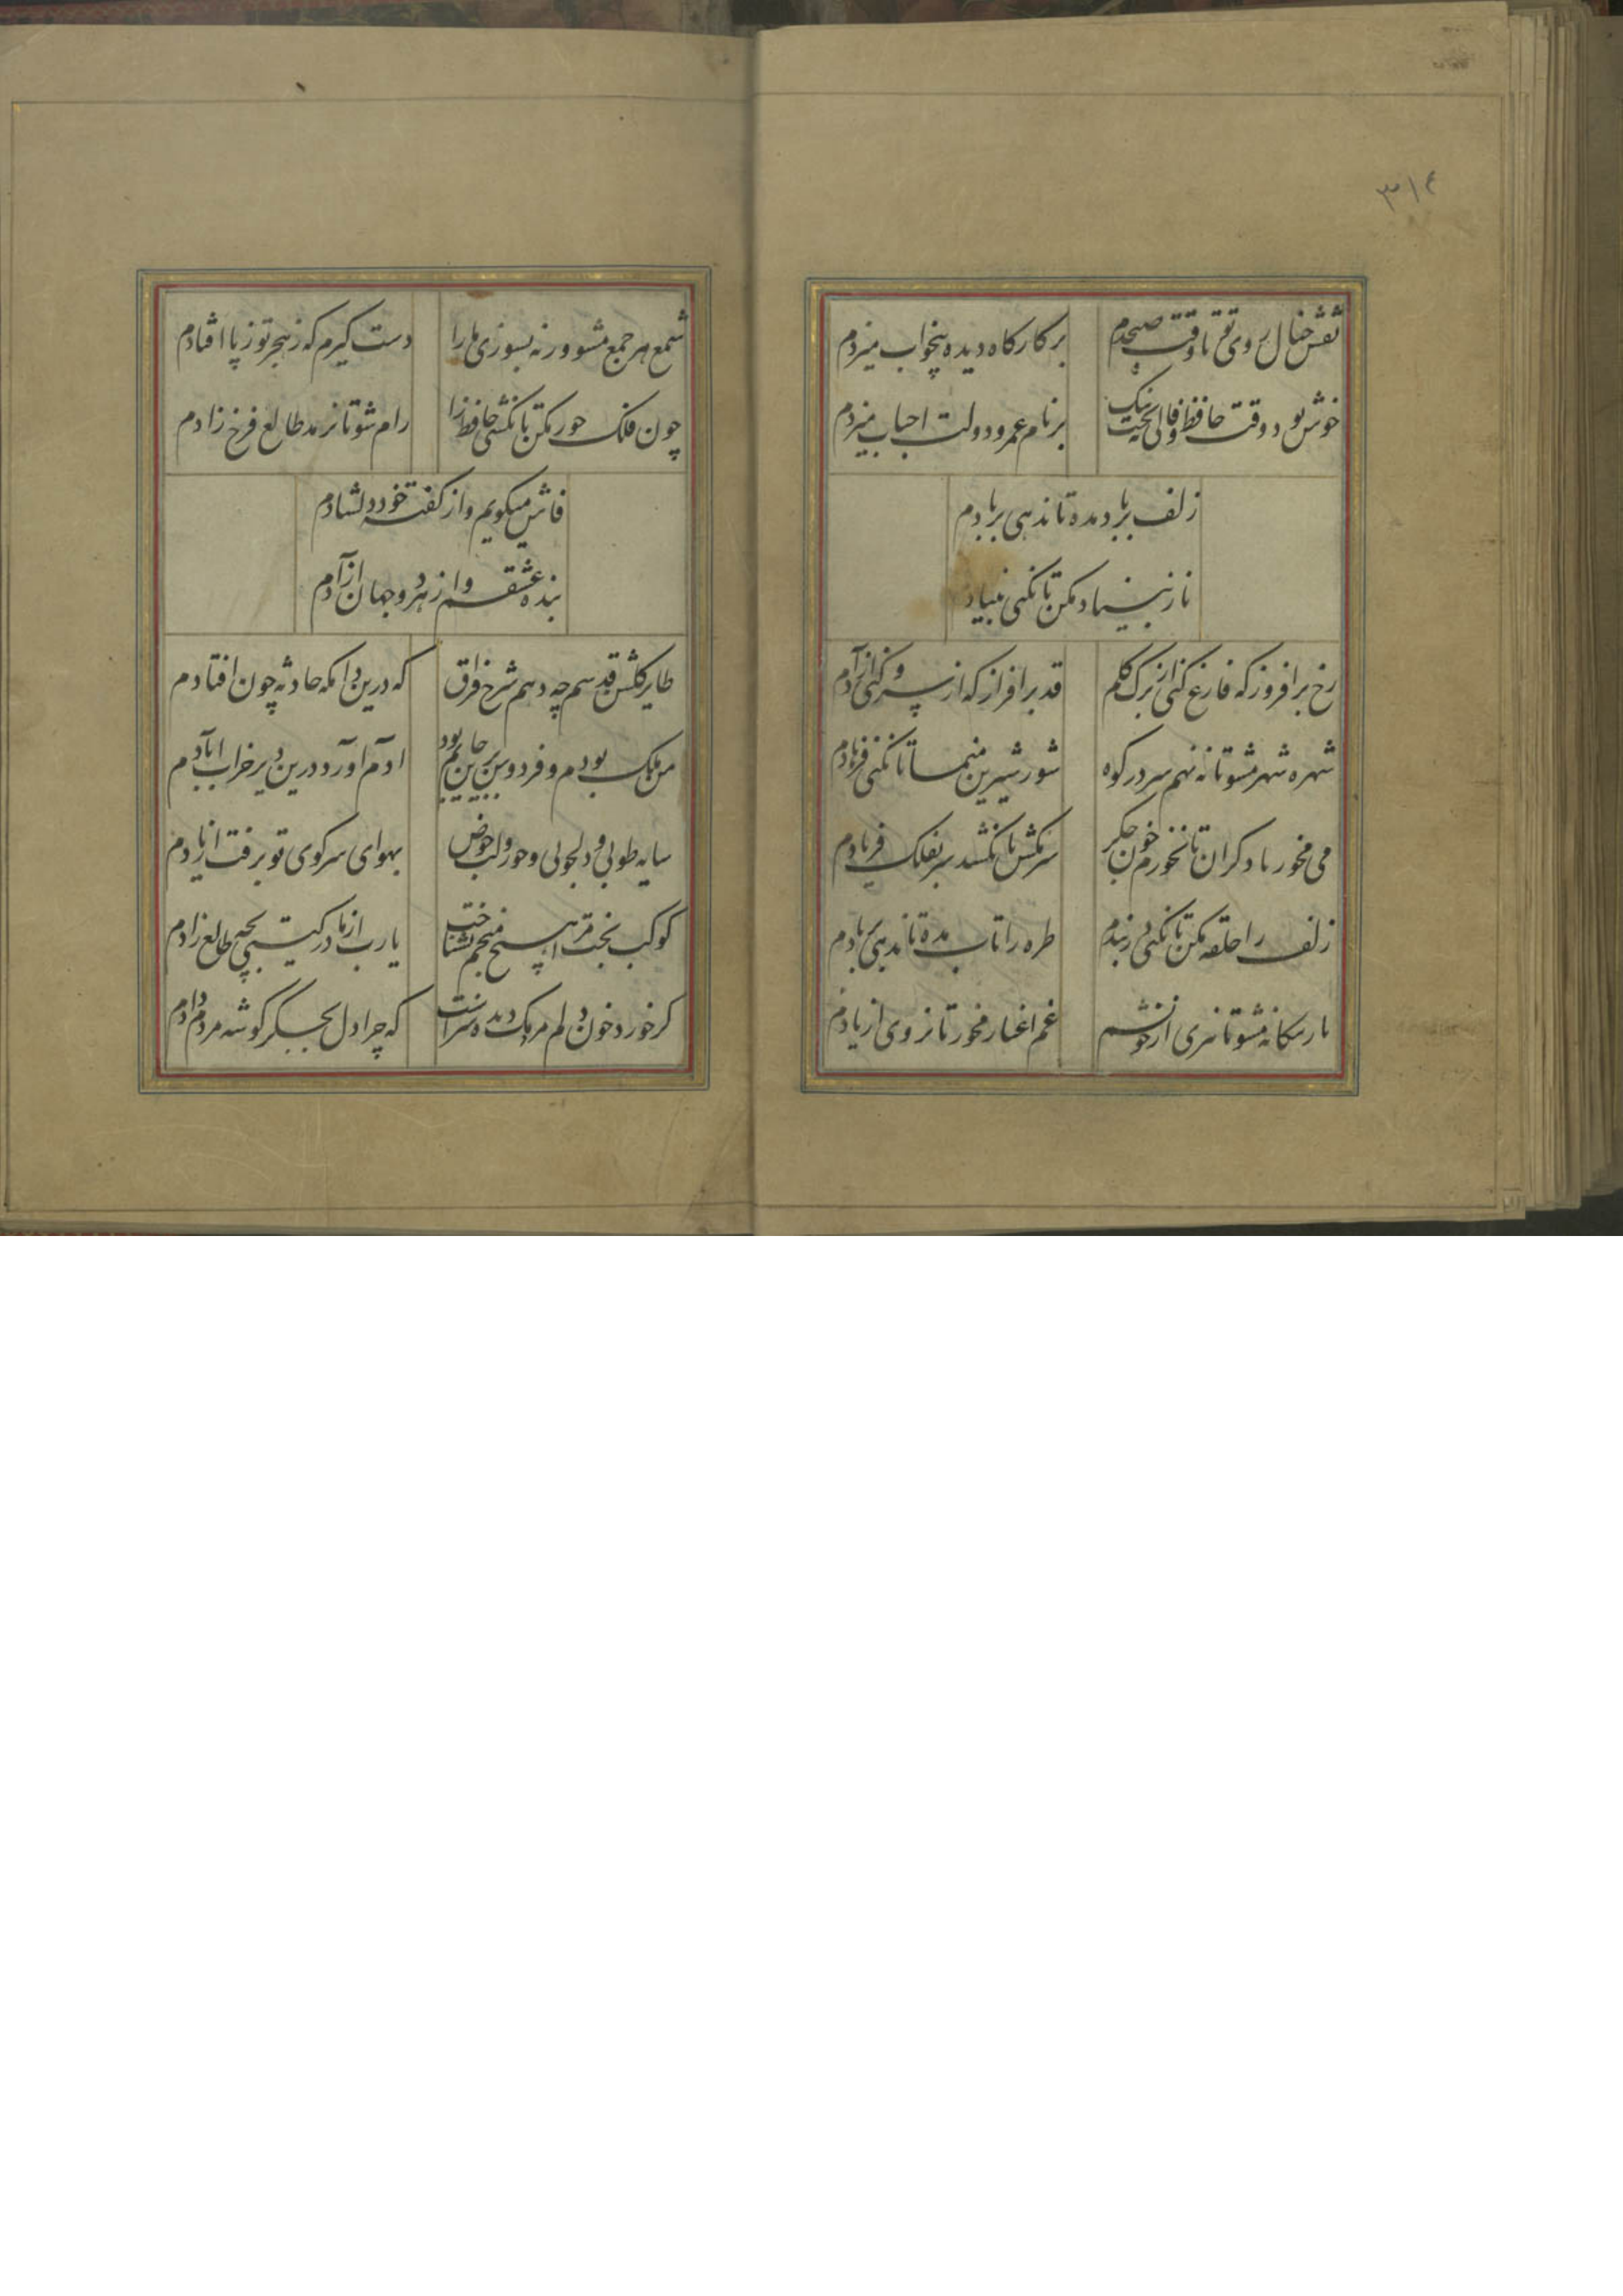 ٣١٤
نقش خیال روی تو تا وقت صبحدم
بر کارکاه دیده بیخواب میزدم
خوش بود وقت حافظ و فالی بخت نیک
بر نام عمر و دولت احباب میزدم
زلف بر باد مده تا ندهی بر بادم
ناز بنیاد مکن تا نکنی بنیادم
رخ برافروز که فارغ کنی از برک کلم
قد برافراز که از سرو کنی آزادم
شهره شهر مشو تا ننهم سر در کوه
شور شیرین منما تا نکنی فرهادم
می مخور با دکران تا نخورم خون جکر
سر مکش تا نکشد سر بفلک فریادم
زلف را حلقه مکن تا نکنی در بندم
طره را تاب مده تا ندهی بر بادم
یار بیکانه مشو تا نبری از خویشم
غم اغیار مخور تا نروی از یادم
شمع هر جمع مشو ورنه بسوزی ما را
دست کیرم که ز هجر تو ز پا افتادم
چون فلک جور مکن تا نکشی حافظ را
رام شو تا بدمد طالع فرخ زادم
فاش میکویم و از کفته خود دلشادم
بنده عشقم و از هر دو جهان آزادم
طایر کلشن قدسم چه دهم شرح فراق
که درین دامکه حادثه چون افتادم
من ملک بودم و فردوس برین جایم بود
ادم آورد درین دیر خراب ابادم
سایه طوبی و دلجوئی حور و لب حوض
بهوای سر کوی تو برفت از یادم
کوکب بخت مرا هیچ منجم نشناخت
یا رب از مادر کیتی بچه طالع زادم
کر خورد خون دلم مردمک دیده سزاست
که چرا دل بجکر کوشه مردم دادم